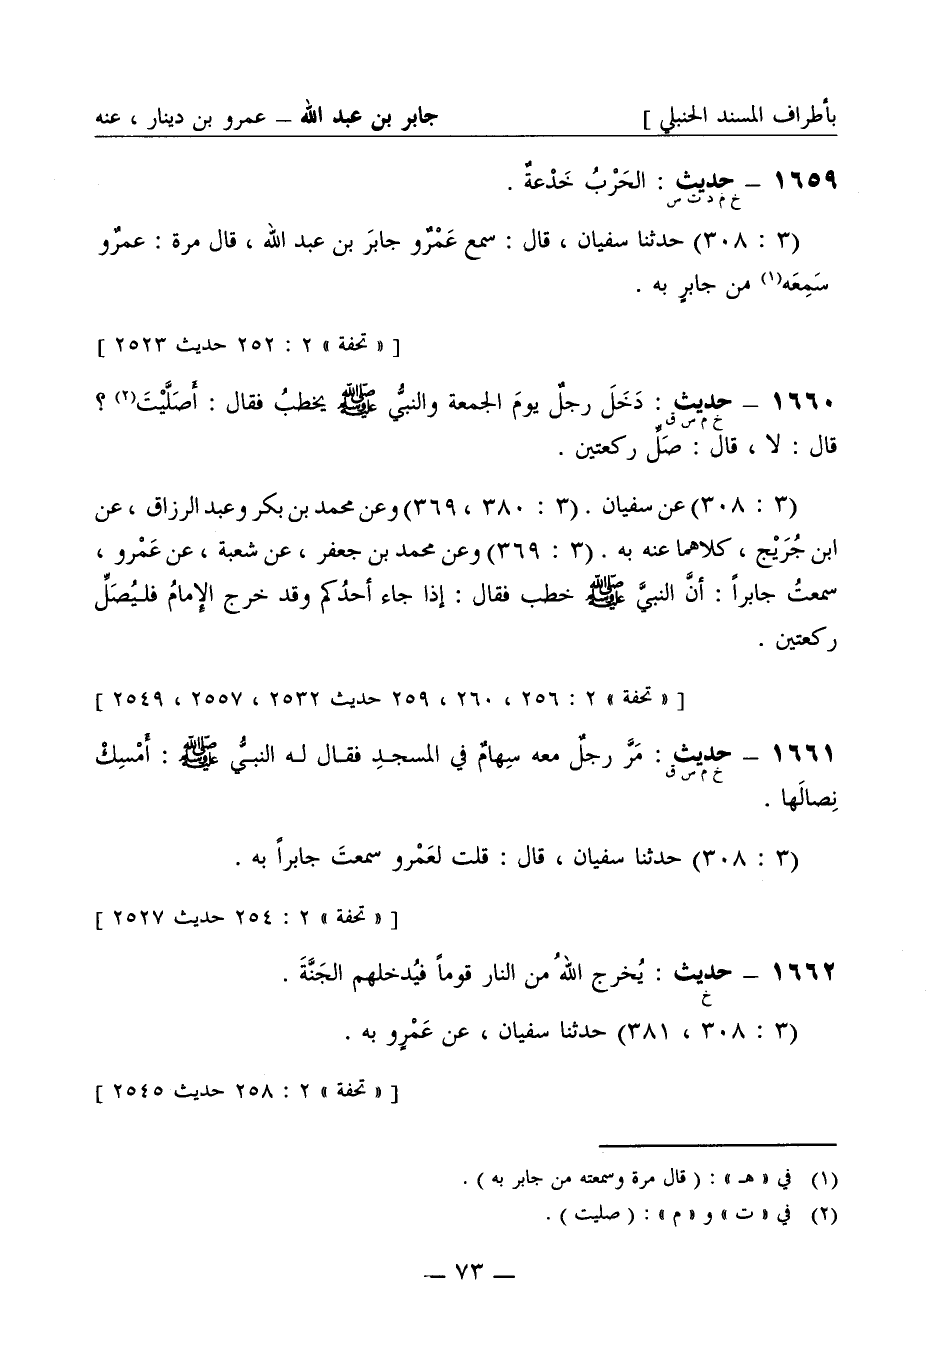 بأطراف المسند الحنبلي ] جابر بن عبد الله – عمرو بن دينار ، عنه
١٦٥٩ – حديث : الحَرْبُ خَدْعةٌ .
خ م د ت س
(٣ : ٣٠٨) حدثنا سفيان ، قال : سمع عَمْرٌو جابرَ بن عبد الله ، قال مرة : عمرٌو
سَمِعَه(١) من جابرٍ به .
[ « تحفة » ٢ : ٢٥٢ حديث ٢٥٢٣ ]
١٦٦٠ – حديث : دَخَلَ رجلٌ يومَ الجمعة والنبيُّ ﷺ يخطبُ فقال : أَصَلَّيْتَ(٢) ؟
خ م س ق
قال : لا ، قال : صَلِّ ركعتين .
(٣ : ٣٠٨) عن سفيان . (٣ : ٣٨٠ ، ٣٦٩) وعن محمد بن بكر وعبد الرزاق ، عن
ابن جُرَيْج ، كلاهما عنه به . (٣ : ٣٦٩) وعن محمد بن جعفر ، عن شعبة ، عن عَمْرو ،
سمعتُ جابراً : أنَّ النبيَّ ﷺ خطب فقال : إذا جاء أحدُكم وقد خرج الإمامُ فليُصَلِّ
ركعتين .
[ « تحفة » ٢ : ٢٥٦ ، ٢٦٠ ، ٢٥٩ حديث ٢٥٣٢ ، ٢٥٥٧ ، ٢٥٤٩ ]
١٦٦١ – حديث : مَرَّ رجلٌ معه سِهامٌ في المسجدِ فقال له النبيُّ ﷺ : أَمْسِكْ
خ م س ق
نِصالَها .
(٣ : ٣٠٨) حدثنا سفيان ، قال : قلت لعَمْرو سمعتَ جابراً به .
[ « تحفة » ٢ : ٢٥٤ حديث ٢٥٢٧ ]
١٦٦٢ – حديث : يُخرج اللهُ من النار قوماً فيُدخلهم الجَنَّةَ .
خ
(٣ : ٣٠٨ ، ٣٨١) حدثنا سفيان ، عن عَمْرٍو به .
[ « تحفة » ٢ : ٢٥٨ حديث ٢٥٤٥ ]
(١) في « هـ » : ( قال مرة وسمعته من جابر به ) .
(٢) في « ت » و « م » : ( صليت ) .
– ٧٣ –